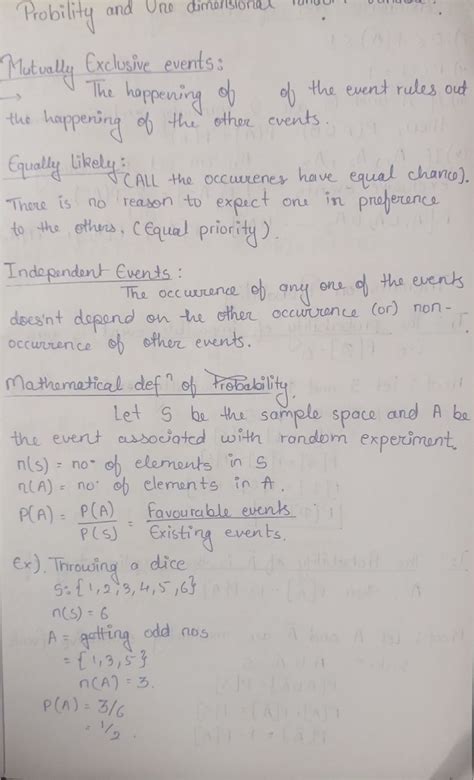 Probility and One dimensional random
Mutually Exclusive events:
→ The happening of of the event rules out
the happening of the other events.
Equally Likely:
(ALL the occurrenes have equal chance).
There is no reason to expect one in preference
to the others. (Equal priority).
Independent Events:
The occurrence of any one of the events
does'nt depend on the other occurrence (or) non-
occurrence of other events.
Mathematical defn of Probability.
Let S be the sample space and A be
the event associated with random experiment.
n(s) = no· of elements in S
n(A) = no· of elements in A.
P(A) = P(A)/P(S) = Favourable events/Existing events.
Ex). Throwing a dice
S = {1,2,3,4,5,6}
n(s) = 6
A = getting odd nos
= {1,3,5}
n(A) = 3.
P(A) = 3/6
= 1/2